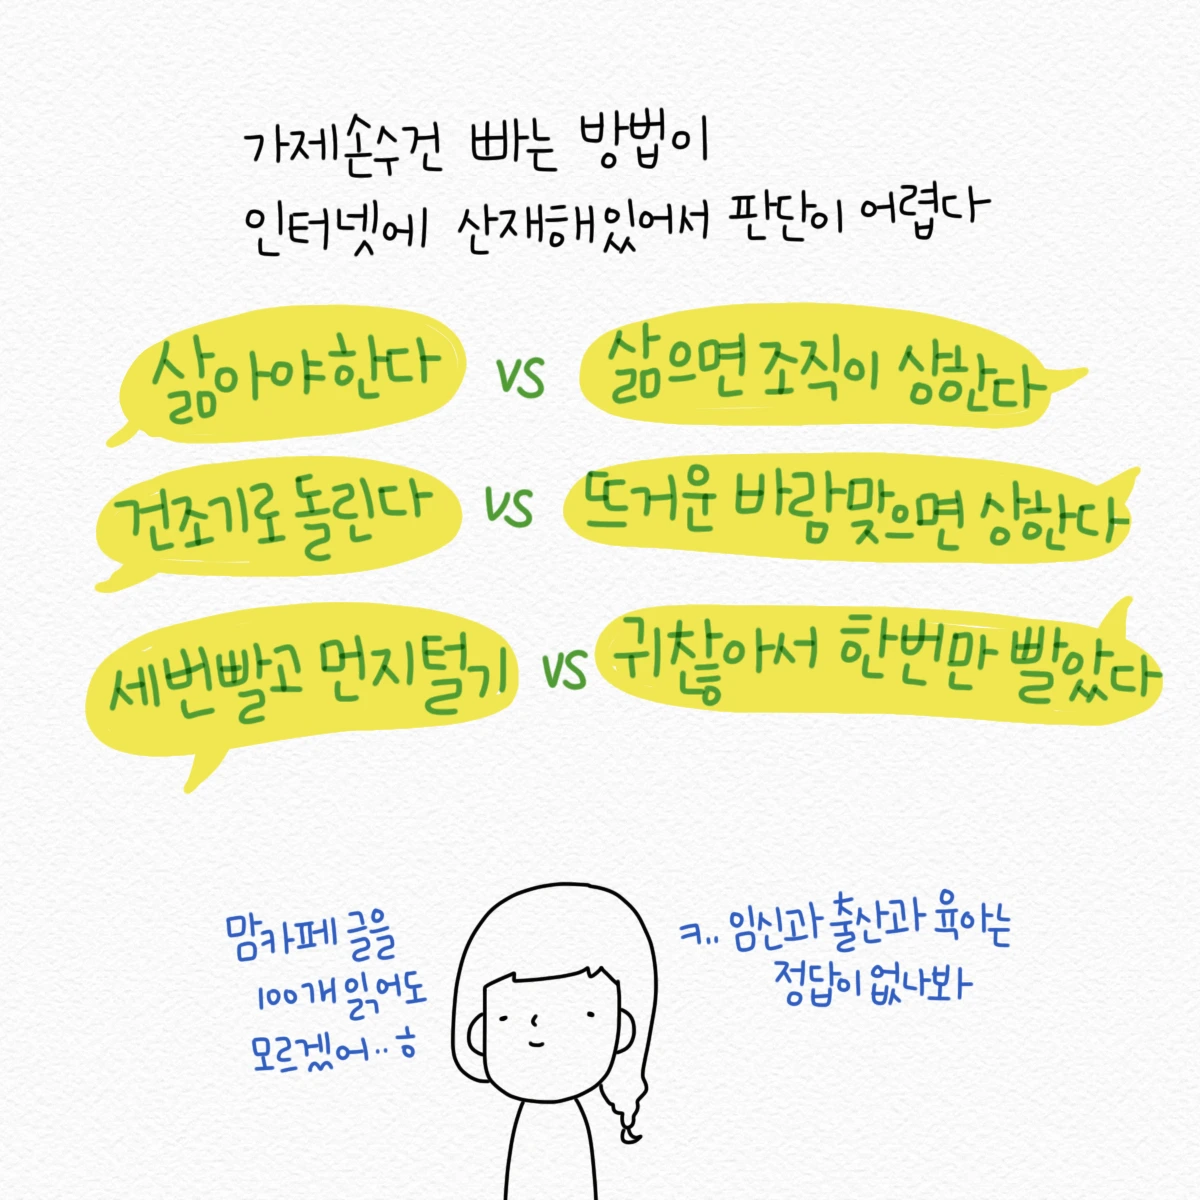 가제손수건 빠는 방법이
인터넷에 산재해있어서 판단이 어렵다
삶아야한다 vs 삶으면 조직이 상한다
건조기로 돌린다 vs 뜨거운 바람맞으면 상한다
세번빨고 먼지털기 vs 귀찮아서 한번만 빨았다
맘카페 글을
100개 읽어도
모르겠어..ㅎ
ㅋ.. 임신과 출산과 육아는
정답이 없나봐